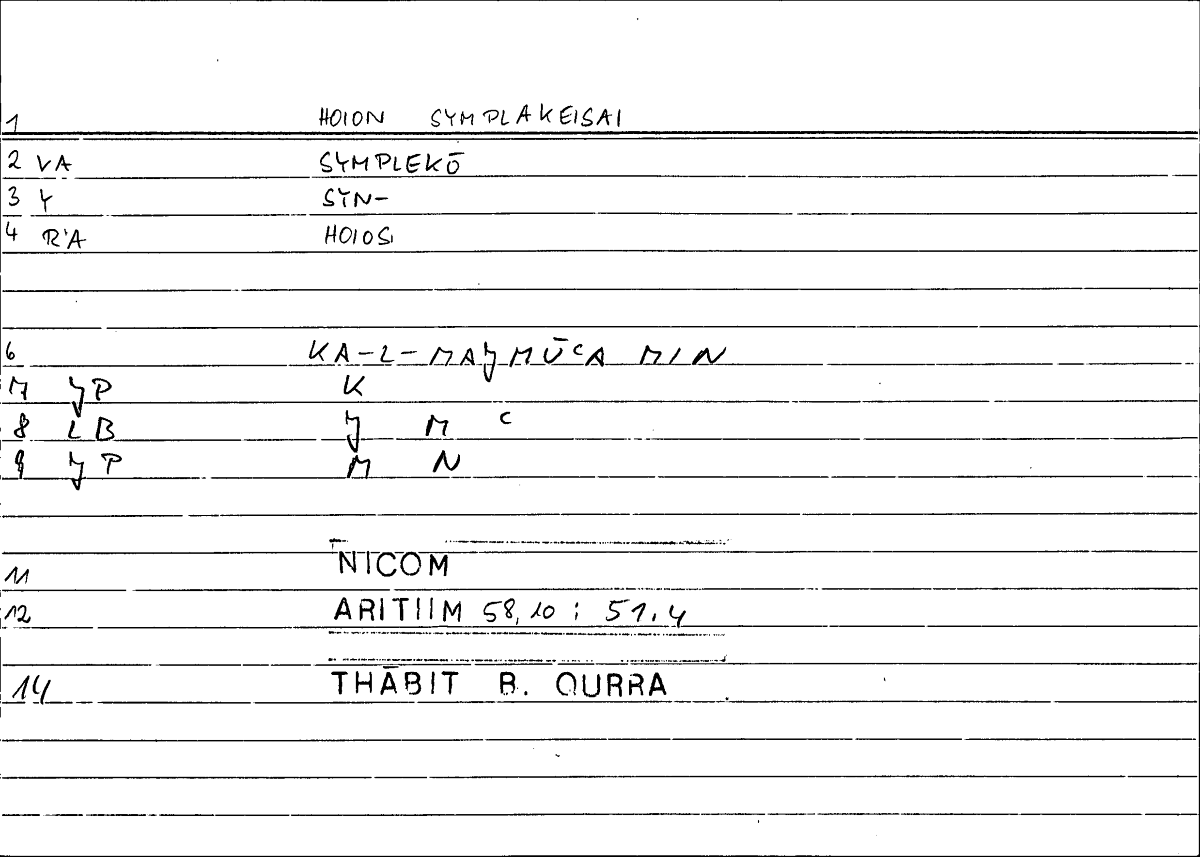 1 HOION SYMPLAKEISAI
2 VA SYMPLEKŌ
3 Y SYN-
4 R'A HOIOS
6 KA-L-MAJMŪCA MIN
7 JP K
8 LB J M C
9 JP M N
11 NICOM
12 ARITIIM 58,10 ; 51.4
14 THĀBIT B. QURRA